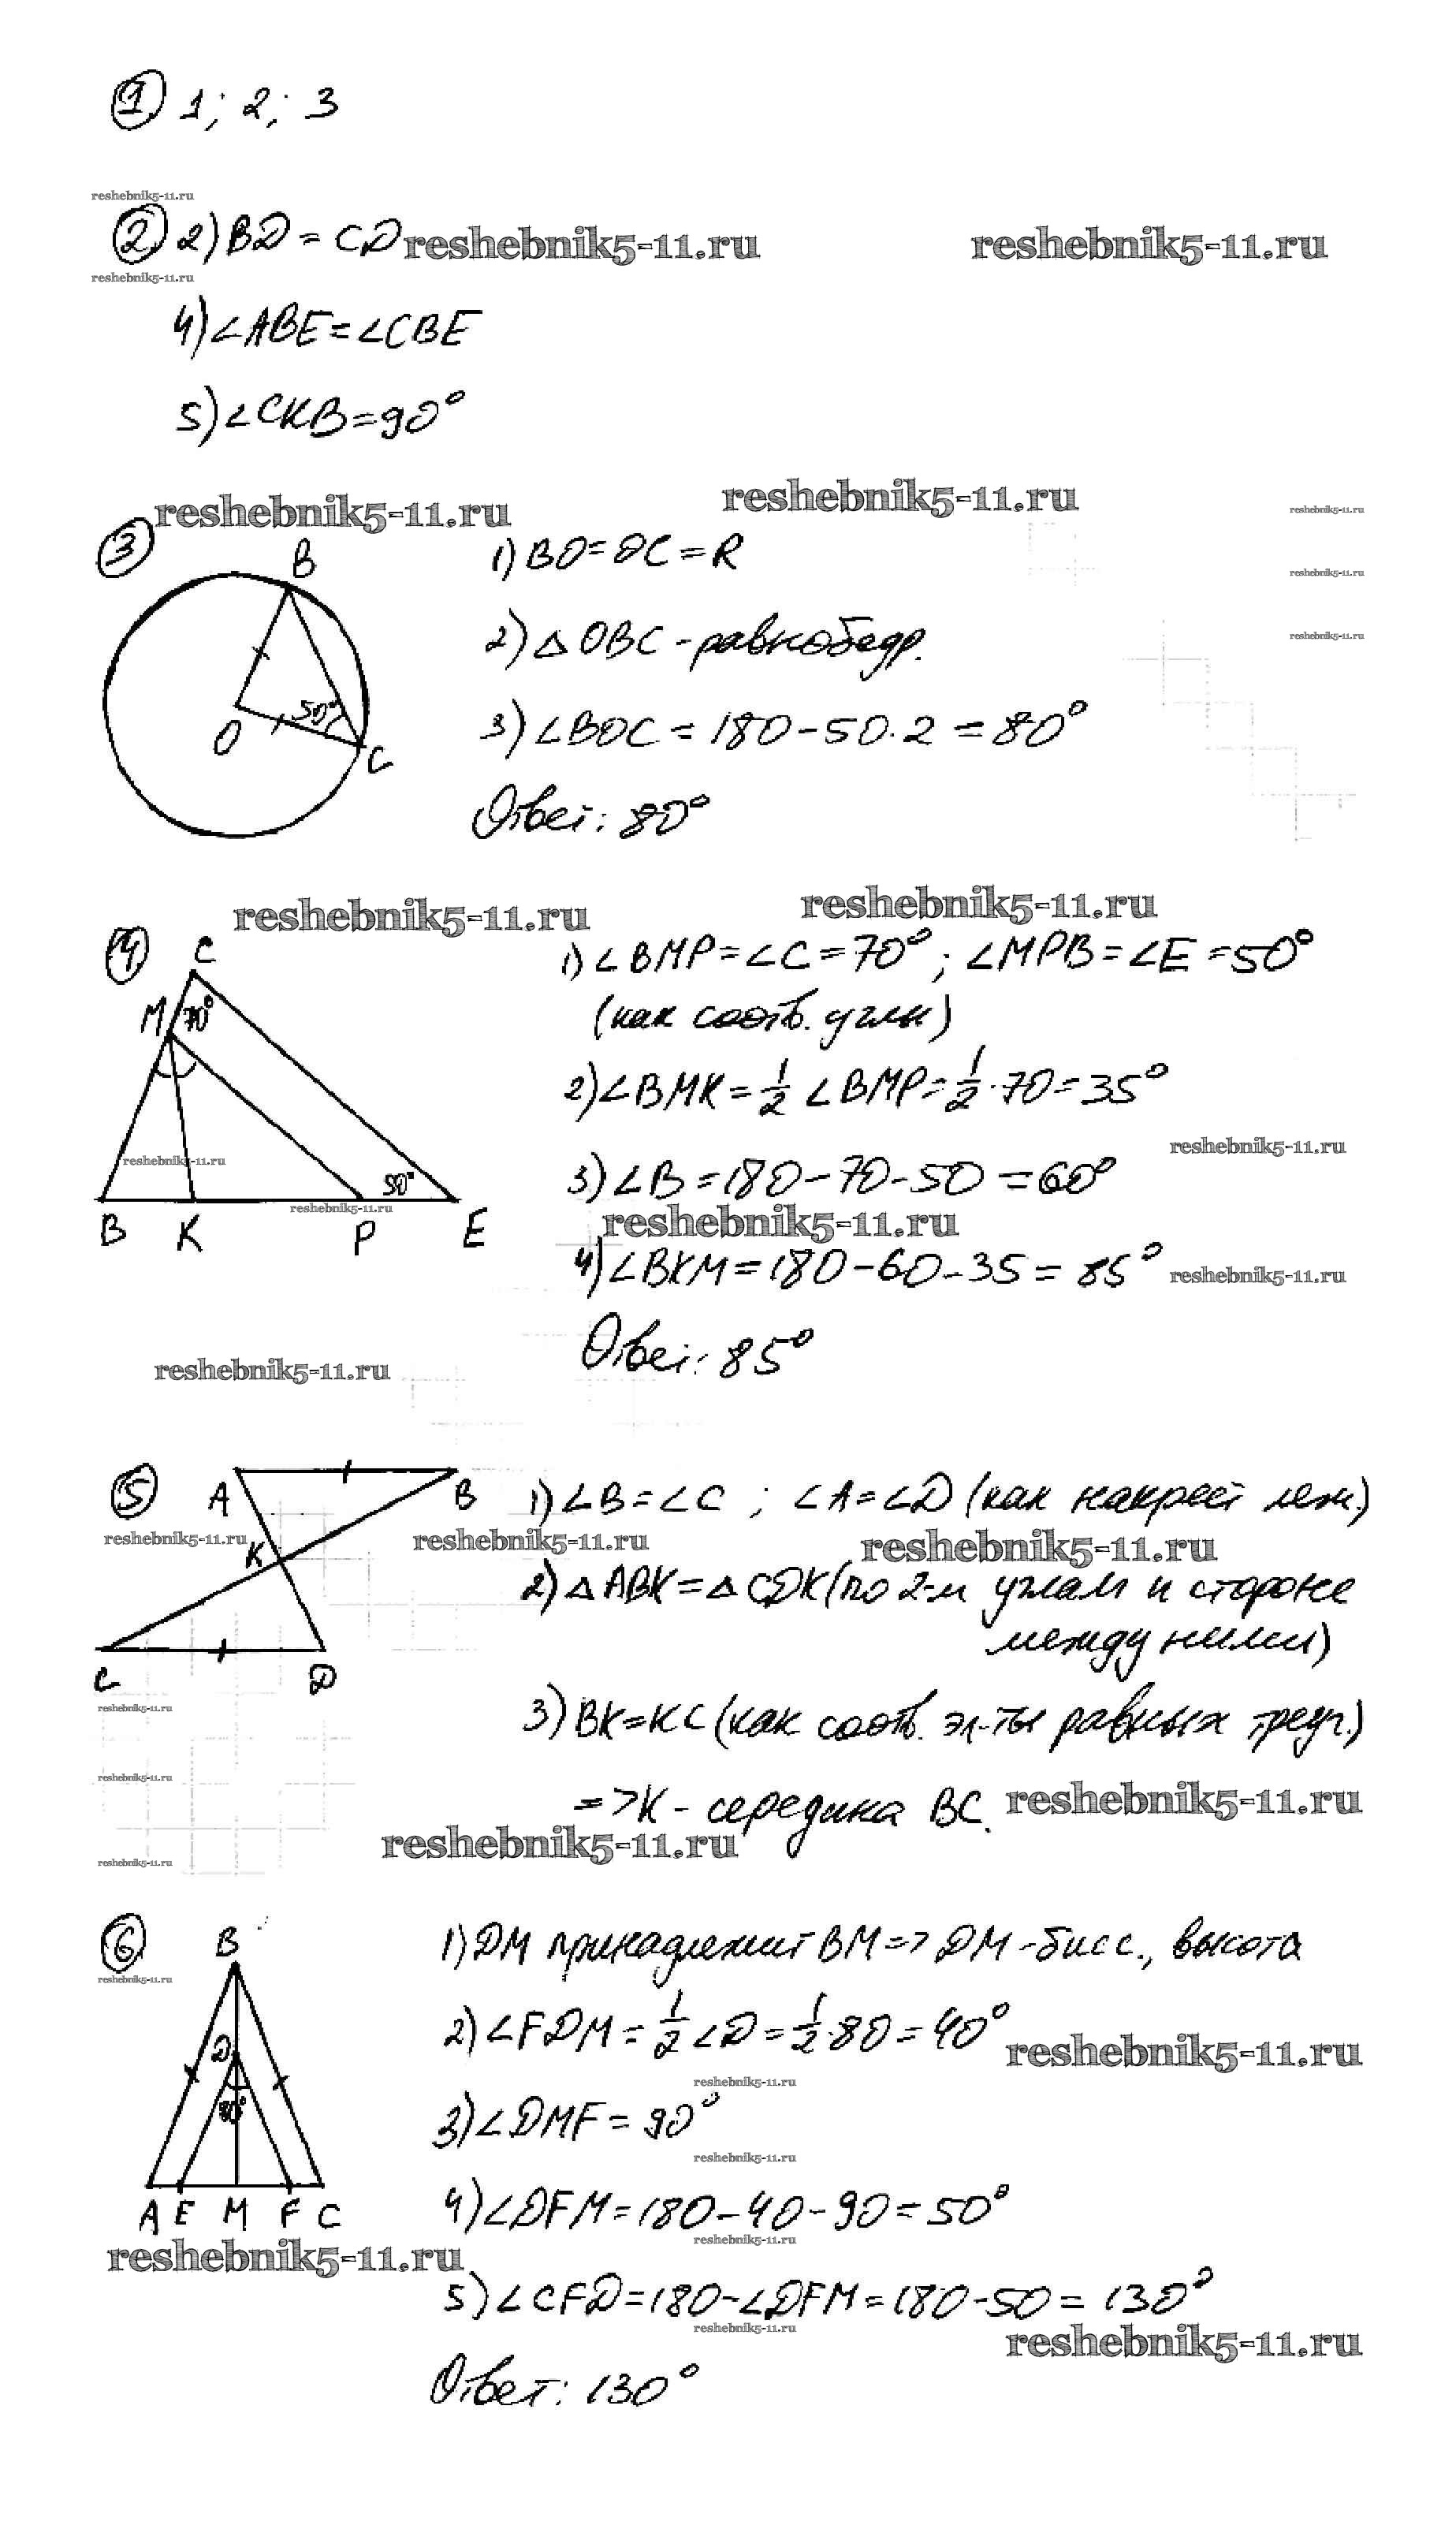 1 1; 2; 3
reshebnik5-11.ru
2 2) BD = CD reshebnik5-11.ru reshebnik5-11.ru
reshebnik5-11.ru
4) ∠ABE = ∠CBE
5) ∠CKB = 90°
reshebnik5-11.ru reshebnik5-11.ru reshebnik5-11.ru
3 B 1) BO = OC = R
reshebnik5-11.ru
2) △ OBC - равнобедр.
reshebnik5-11.ru
50° O C 3) ∠BOC = 180 - 50·2 = 80°
Ответ: 80°
reshebnik5-11.ru reshebnik5-11.ru
4 C 1) ∠BMP = ∠C = 70°; ∠MPB = ∠E = 50°
M 70° (как соотв. углы)
2) ∠BMK = 1/2 ∠BMP = 1/2 · 70 = 35°
reshebnik5-11.ru reshebnik5-11.ru
50° 3) ∠B = 180 - 70 - 50 = 60°
reshebnik5-11.ru reshebnik5-11.ru
B K P E
4) ∠BKM = 180 - 60 - 35 = 85° reshebnik5-11.ru
Ответ: 85°
reshebnik5-11.ru
5 A B 1) ∠B = ∠C; ∠A = ∠D (как накрест леж.)
reshebnik5-11.ru reshebnik5-11.ru reshebnik5-11.ru
K 2) △ ABK = △ CDK (по 2-м углам и стороне
между ними)
C D
reshebnik5-11.ru
3) BK = KC (как соотв. эл-ты равных треуг.)
reshebnik5-11.ru
=> K - середина BC. reshebnik5-11.ru
reshebnik5-11.ru
reshebnik5-11.ru
6 B 1) DM принадлежит BM => DM - бисс., высота
reshebnik5-11.ru
D 2) ∠FDM = 1/2 ∠D = 1/2·80 = 40°
reshebnik5-11.ru
reshebnik5-11.ru
80° 3) ∠DMF = 90°
reshebnik5-11.ru
A E M F C 4) ∠DFM = 180 - 40 - 90 = 50°
reshebnik5-11.ru
reshebnik5-11.ru
5) ∠CFD = 180 - ∠DFM = 180 - 50 = 130°
reshebnik5-11.ru
reshebnik5-11.ru
Ответ: 130°